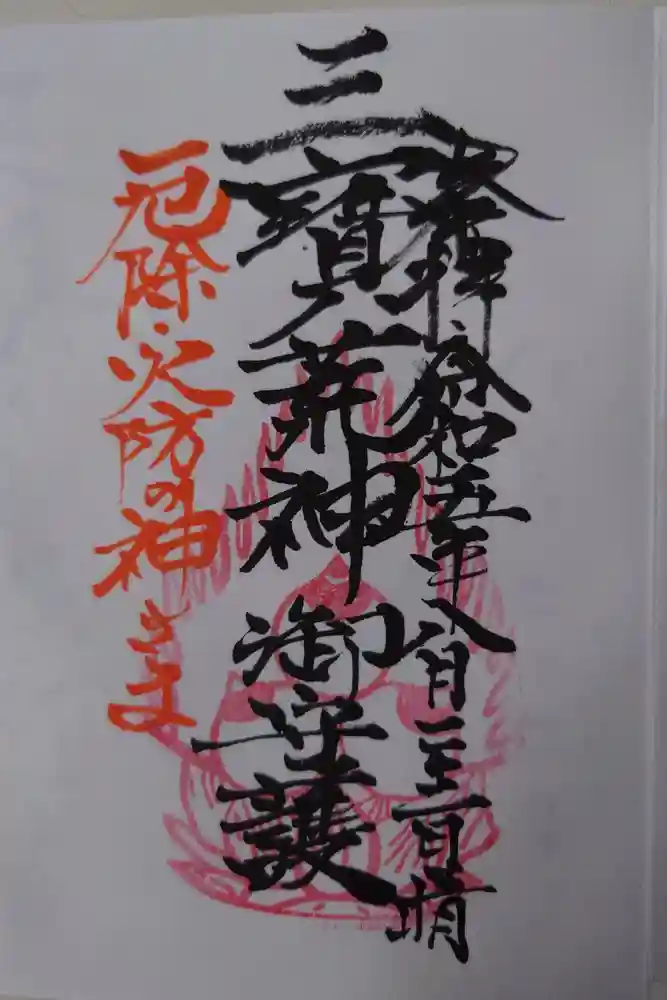 奉拝・令和五年八月 晴
三寶荒神御守護
厄除・火防の神さま